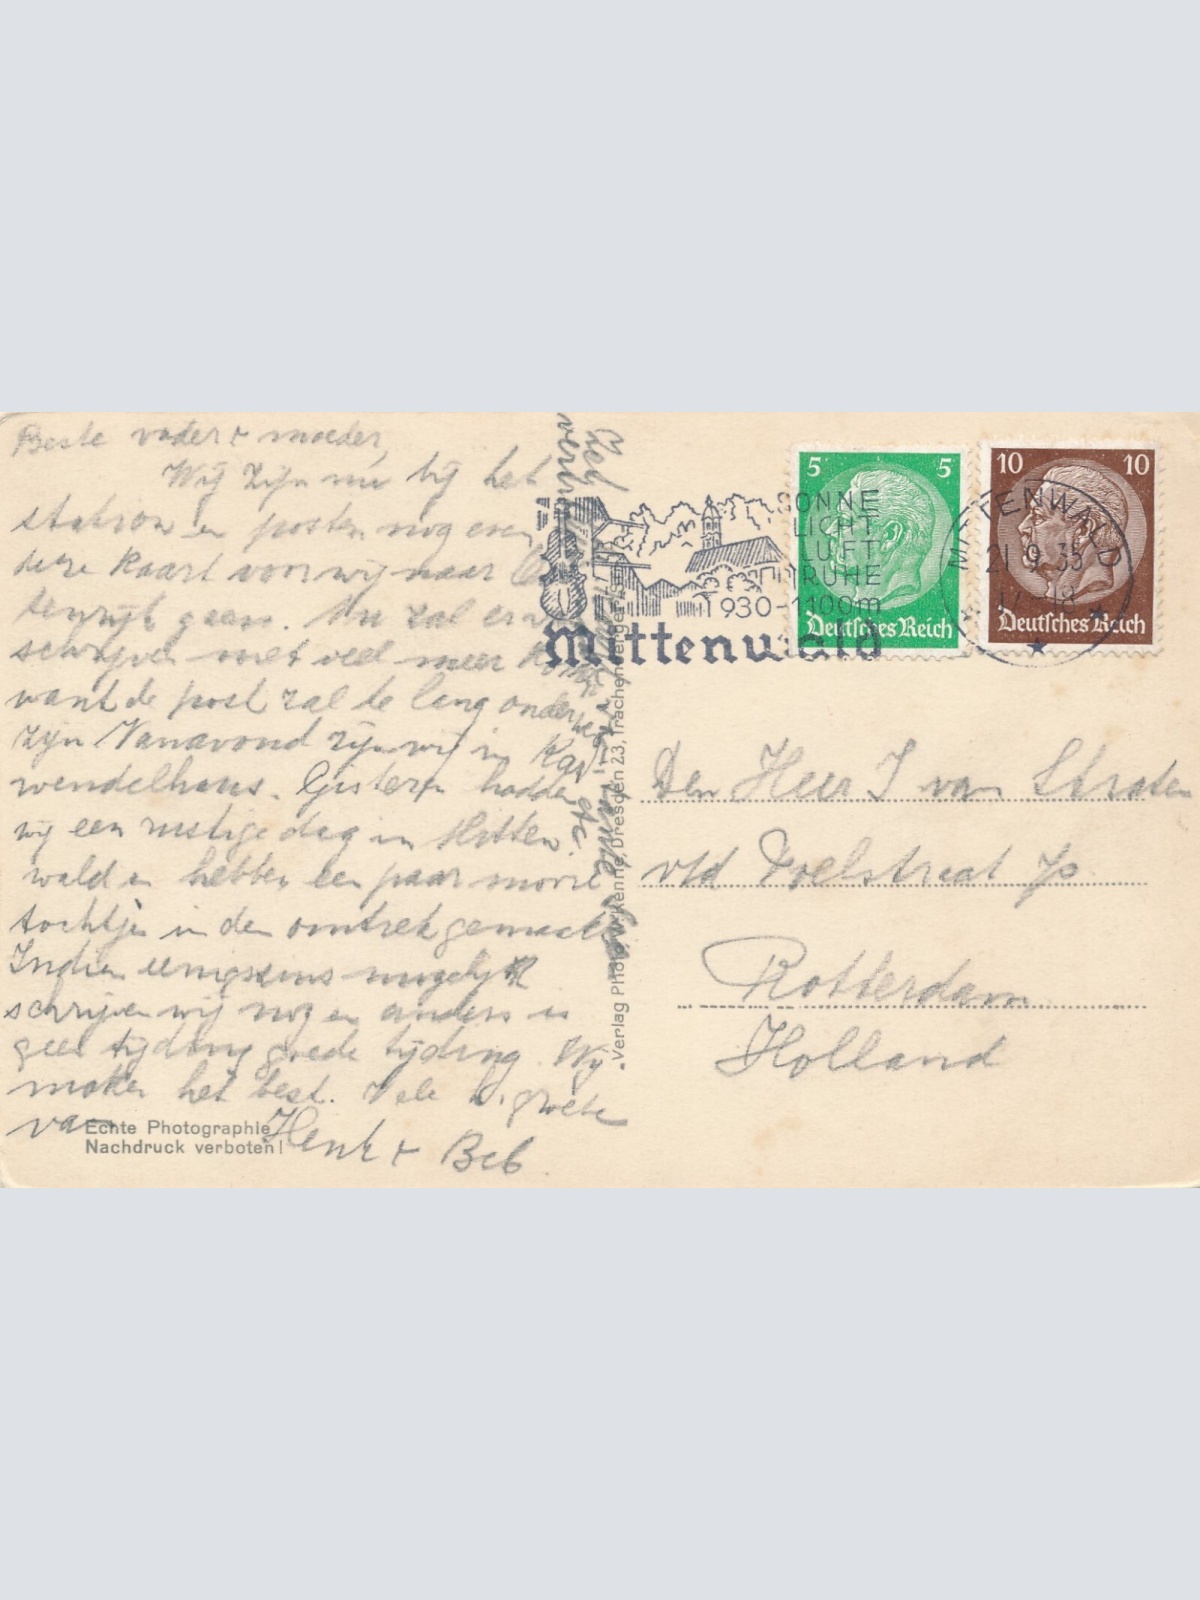 Beste vader + moeder,
Wij zijn nu bij het
station en posten nog even
deze kaart voor wij naar Oos
tenrijk gaan. Nu zal er v
schrijven niet veel meer komen
want de post zal te lang onderweg
zijn Vanavond zijn wij in Kar
wendelhaus. Gisteren hadden
wij een rustige dag in Mitten
wald en hebben een paar mooie
tochtjes in den omtrek gemaakt
Indien eenigszins mogelijk
schrijven wij nog en anders is
geen tijding goede tijding. Wij
maken het best. Vele h. groeten
van Henk + Beb
Echte Photographie
Nachdruck verboten!
Verlag Photo Dresden 23,
SONNE
LICHT
LUFT
RUHE
930-1100m
Mittenwald
5 5
Deutsches Reich
10 10
Deutsches Reich
MITTENWALD
21.9.35
Den Heer J van Straten
v/d
Rotterdam
Holland